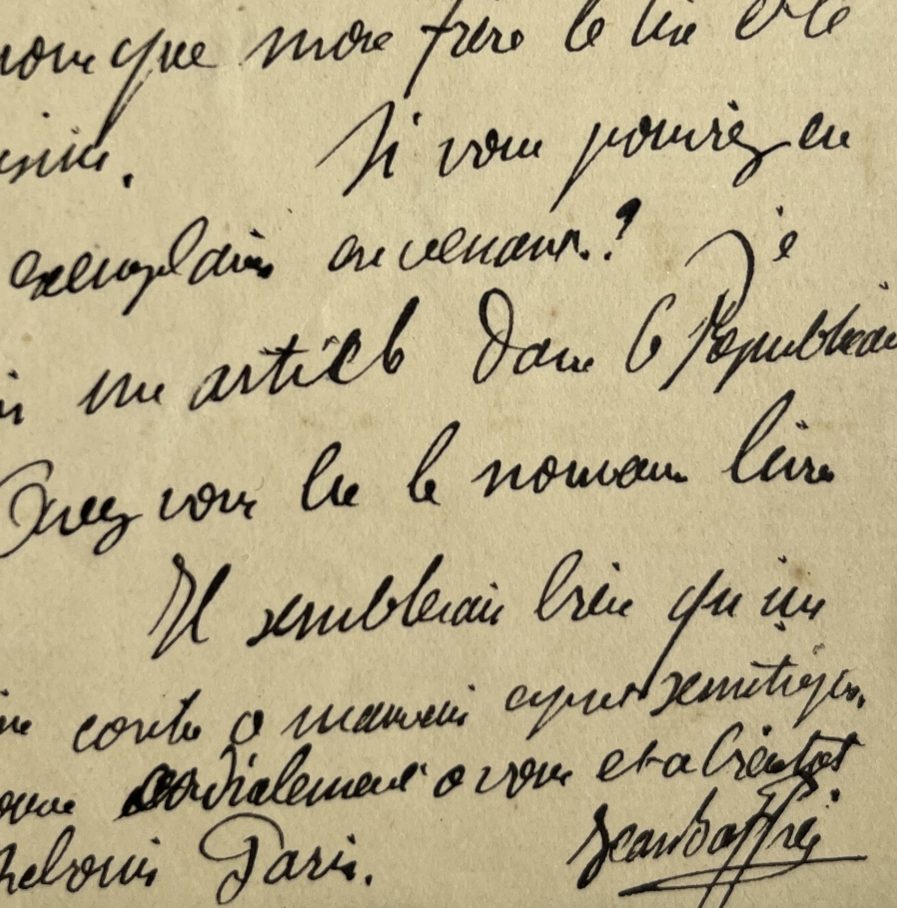 que mon frère le lise et le
. Si vous pouviez en
exemplaires en venant ? je
un article dans le Républicain
Avez vous lu le nouveau livre
Il semblerait bien qu'un
contre ce mauvais esprit sémitique.
cordialement à vous et à bientôt
Paris. Jean